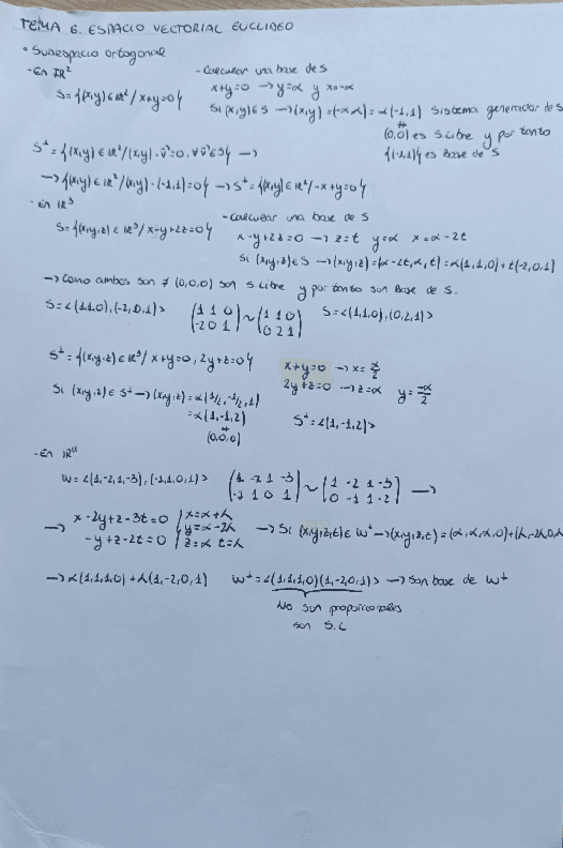 TEMA 6. ESPACIO VECTORIAL EUCLIDEO
• Subespacio ortogonal
- En IR²
- Calcular una base de S
S={(x,y)∈IR²/x+y=0}
x+y=0 → y=α y x=-α
Si (x,y)∈S → (x,y)=(-α,α)=α(-1,1) Sistema generador de S
≠
(0,0) es S.Libre y por tanto
{(-1,1)} es Base de S
S⊥={(x,y)∈IR²/(x,y)·v̄=0,∀v̄∈S} →
→{(x,y)∈IR²/(x,y)·(-1,1)=0} → S⊥={(x,y)∈IR²/-x+y=0}
- En IR³
- Calcular una base de S
S={(x,y,z)∈IR³/x-y+2z=0}
x-y+2z=0 → z=t y=α x=α-2t
Si (x,y,z)∈S → (x,y,z)=(α-2t,α,t)=α(1,1,0)+t(-2,0,1)
→ Como ambos son ≠ (0,0,0) son S.Libre y por tanto son Base de S.
S=<(1,1,0),(-2,0,1)>
(1 1 0
-2 0 1) ~ (1 1 0
0 2 1)
S=<(1,1,0),(0,2,1)>
S⊥={(x,y,z)∈IR³/x+y=0, 2y+z=0}
x+y=0 → x=α/2
2y+z=0 → z=α y=-α/2
Si (x,y,z)∈S⊥ → (x,y,z)=α(1/2,-1/2,1)
=α(1,-1,2)
≠
(0,0,0)
S⊥=<(1,-1,2)>
- En IR⁴
W=<(1,-2,1,-3),(-1,1,0,1)>
(1 -2 1 -3
-1 1 0 1) ~ (1 -2 1 -3
0 -1 1 -2) →
→ x-2y+z-3t=0
-y+z-2t=0
x=α+λ
y=α-2λ
z=α t=λ
→ Si (x,y,z,t)∈W⊥ → (x,y,z,t)=(α,α,α,0)+(λ,-2λ,0,λ
→ α(1,1,1,0)+λ(1,-2,0,1) W⊥=<(1,1,1,0)(1,-2,0,1)> → Son base de W⊥
No son proporcionales
son S.L